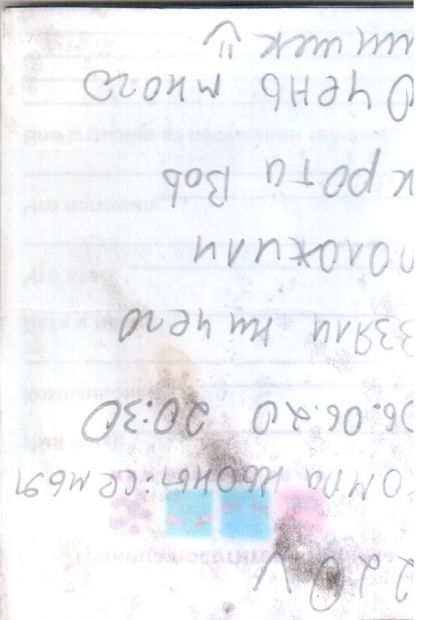 Компаньоны: семья
06.06.20 20:30
взяли ничего
положили
крота Bob
Очень много
шишек